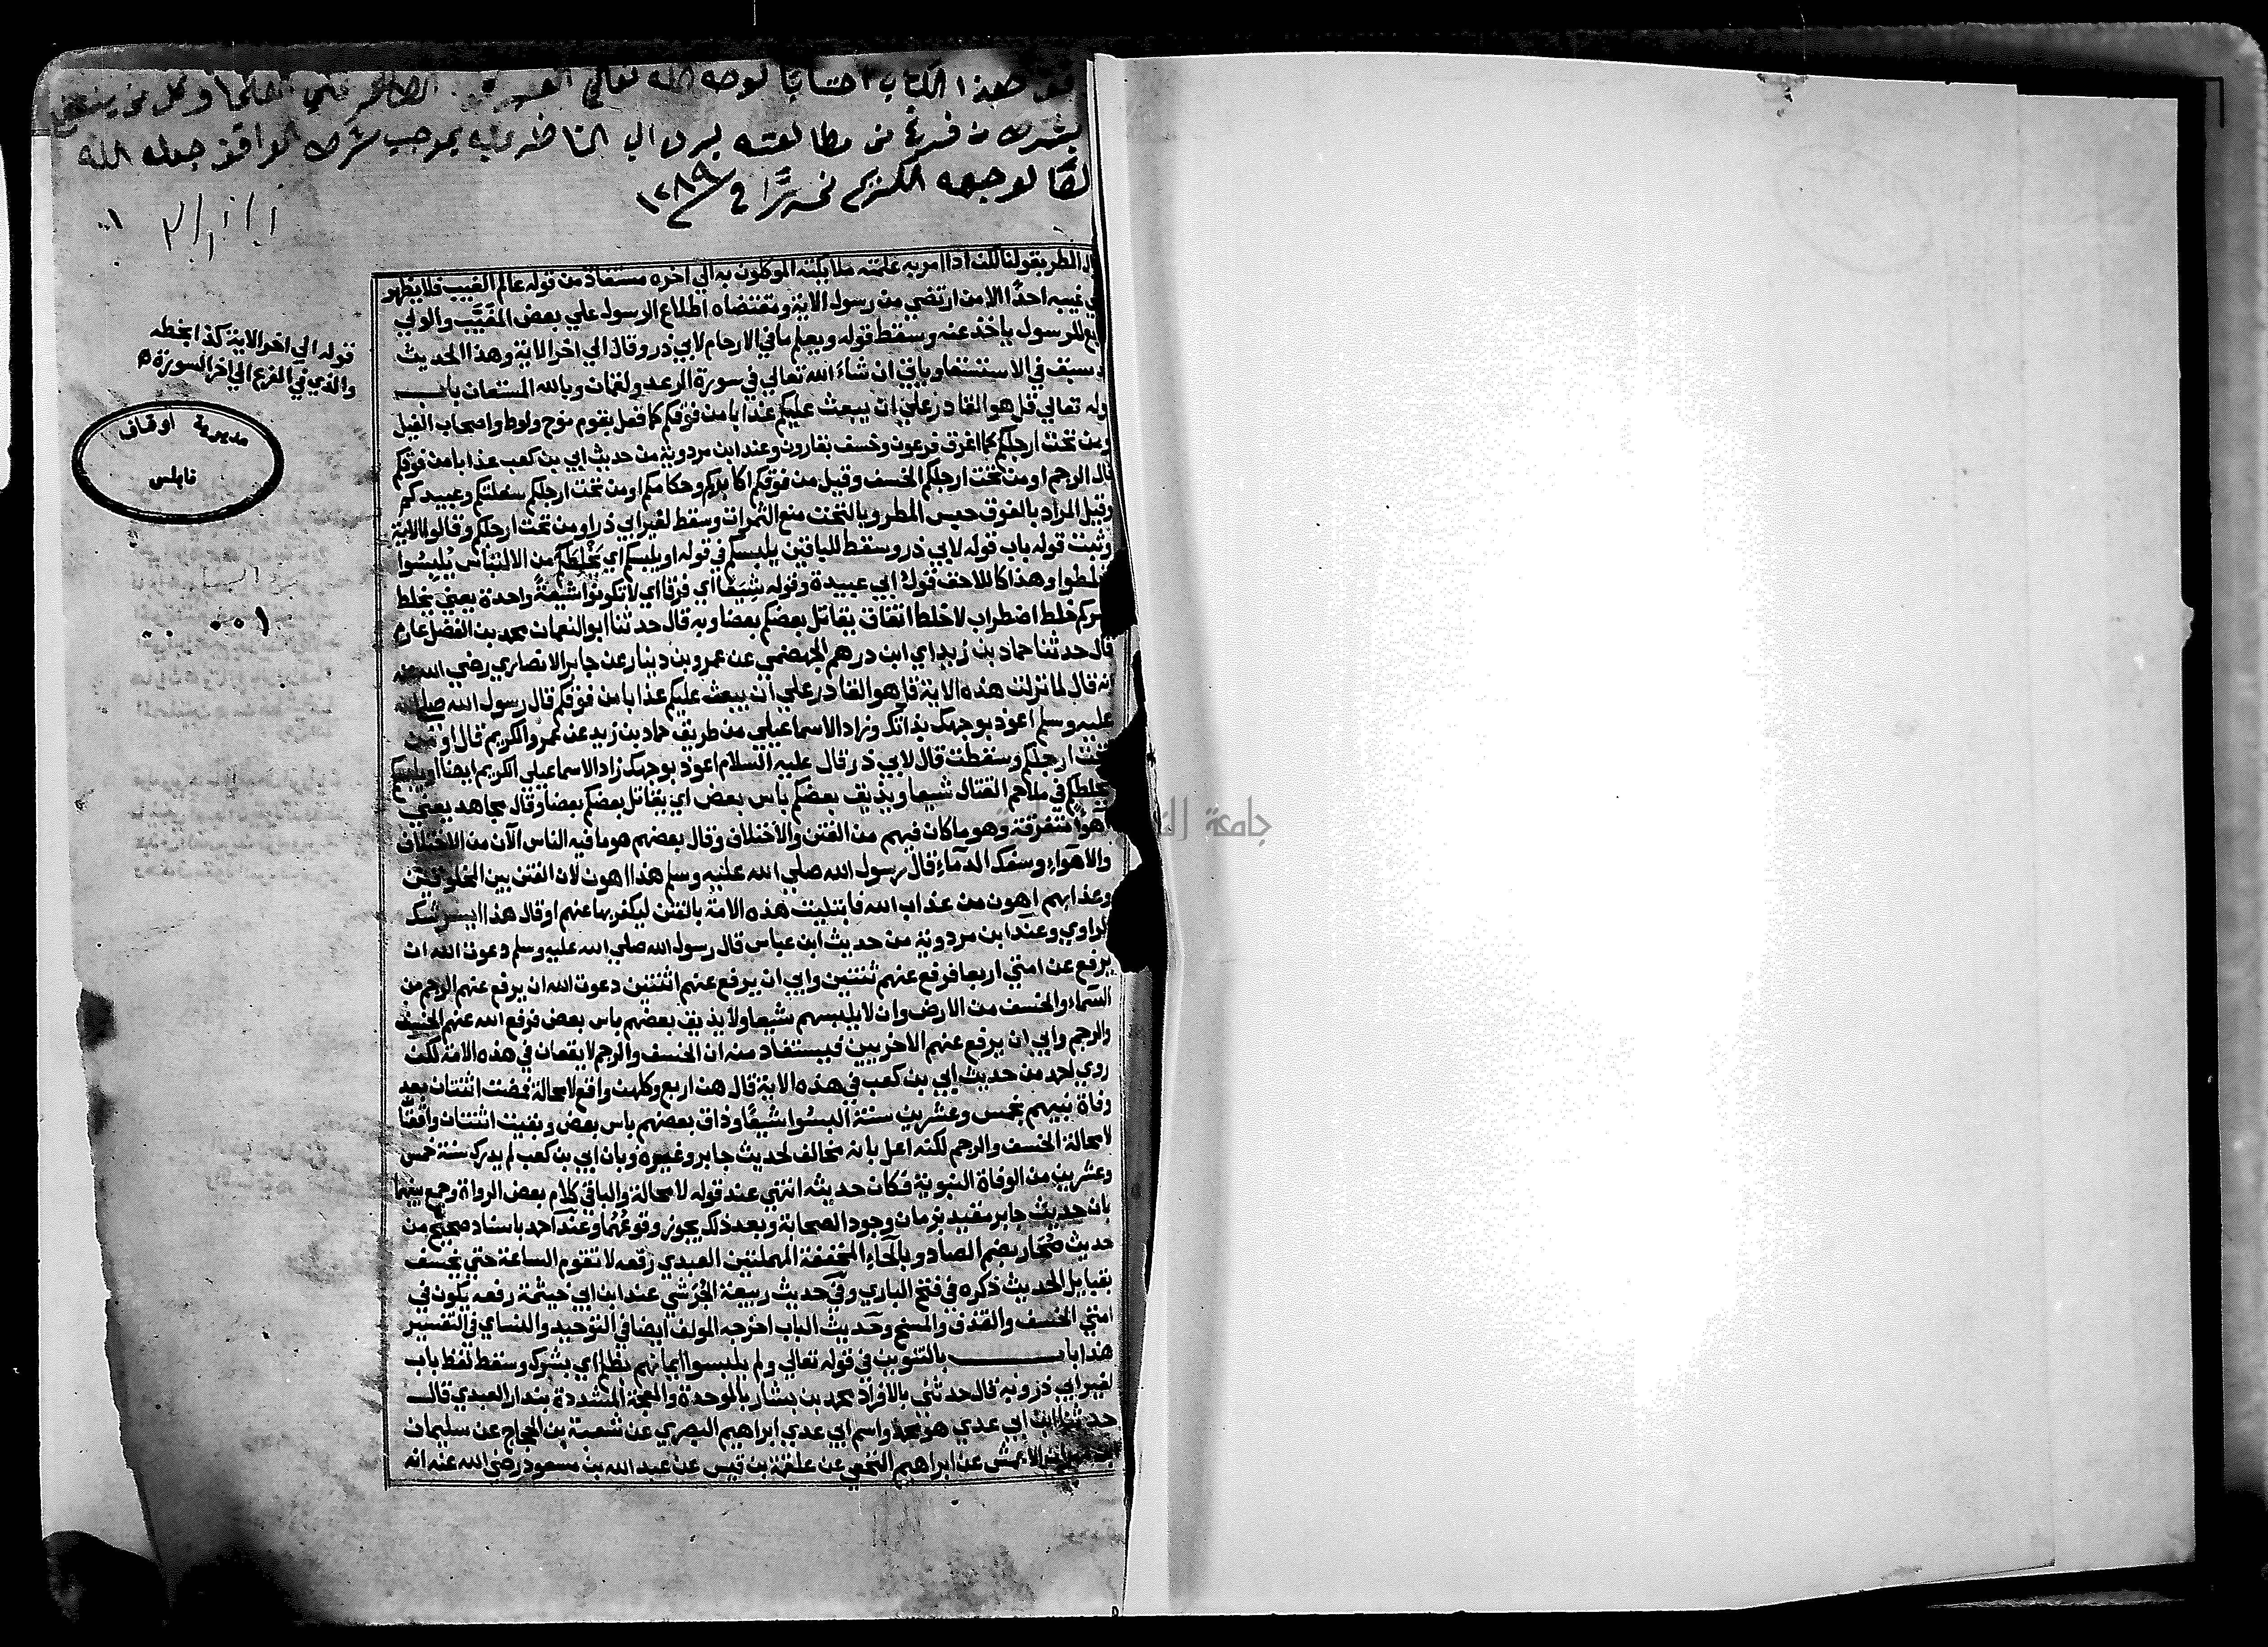 هذا الكتاب احتسابا لوجه الله تعالى العلما وكل من ينتفع
بشرط من فرغ من مطالعته يرده الي الناظر عليه بموجب شرط الواقف جعله الله
لوجهه الكريم تحريرا في ١٢٨٩
قوله الي اخر الاية كذا بخطه
والذي في الفرع الي اخر السورة
مديرية اوقاف
نابلس
المطر بقوله لكن اذا امر به علمته ملايكته الموكلون به الي اخره مستفاد من قوله عالم الغيب فلا يظهر
غيبه احدا الا من ارتضي من رسول الاية ومقتضاه اطلاع الرسول علي بعض المغيب والولي
للرسول ياخذ عنه وسقط قوله ويعلم ما في الارحام لابي ذر وقال الي اخر الاية وهذا الحديث
سبق في الاستسقا وياتي ان شاء الله تعالي في سورة الرعد ولقمان وبالله المستعان باب
قوله تعالي قل هو القادر علي ان يبعث عليكم عذابا من فوقكم كما فعل بقوم نوح ولوط واصحاب الفيل
ومن تحت ارجلكم كما اغرق فرعون وخسف بقارون وعند ابن مردوية من حديث ابي بن كعب عذابا من فوقكم
قال الرجم او من تحت ارجلكم الخسف وقيل من فوقكم اكابركم وحكامكم او من تحت ارجلكم سفلتكم وعبيدكم
وقيل المراد بالفوق حبس المطر وبالتحت منع الثمرات وسقط لغير ابي ذر او من تحت ارجلكم وقالوا الاية
وثبت قوله باب قوله لابي ذر وسقط للباقين يلبسكم في قوله او يلبسكم اي يخلطكم من الالتباس يلبسوا
يخلطوا وهذا كاللاحق قول ابي عبيدة وقوله شيعا اي فرقا اي لا تكونوا شيعة واحدة يعني يخلط
امركم خلط اضطراب لا خلط اتفاق يقاتل بعضكم بعضا وبه قال حدثنا ابو النعمان محمد بن الفضل عارم
قال حدثنا حماد بن زيد اي ابن درهم الجهضمي عن عمرو بن دينار عن جابر الانصاري رضي الله عنه
انه قال لما نزلت هذه الاية قل هو القادر علي ان يبعث عليكم عذابا من فوقكم قال رسول الله صلي الله
عليه وسلم اعوذ بوجهك بذاتك وزاد الاسماعيلي من طريق حماد بن زيد عن عمرو الكريم قال او من
تحت ارجلكم وسقطت قال لابي ذر قال عليه السلام اعوذ بوجهك زاد الاسماعيلي الكريم ايضا او يلبسكم
يخلطكم في ملاحم القتال شيعا ويذيق بعضكم باس بعض اي يقاتل بعضكم بعضا وقال مجاهد يعني
اهوآ متفرقة وهو ما كان فيهم من الفتن والاختلاف وقال بعضهم هو ما فيه الناس الآن من الاختلاف
والاهواء وسفك الدماء قال رسول الله صلي الله عليه وسلم هذا اهون لان الفتن بين المخلوقين
وعذابهم اهون من عذاب الله فابتليت هذه الامة بالفتن ليكفر بها عنهم او قال هذا ايسر شك
الراوي وعند ابن مردوية من حديث ابن عباس قال رسول الله صلي الله عليه وسلم دعوت الله ان
يرفع عن امتي اربعا فرفع عنهم ثنتين وابي ان يرفع عنهم اثنتين دعوت الله ان يرفع عنهم الرجم من
السماء والخسف من الارض وان لا يلبسهم شيعا ولا يذيق بعضهم باس بعض فرفع الله عنهم الخسف
والرجم وابي ان يرفع عنهم الاخريين فيستفاد منه ان الخسف والرجم لا يقعان في هذه الامة لكن
روي احمد من حديث ابي بن كعب في هذه الاية قال هن اربع وكلهن واقع لا محالة فمضت اثنتان بعد
وفاة نبيهم بخمس وعشرين سنة البسوا شيعا وذاق بعضهم باس بعض وبقيت اثنتان واقعتا
لا محالة الخسف والرجم لكنه اعل بانه مخالف لحديث جابر وغيره وبان ابي بن كعب لم يدرك سنة خمس
وعشرين من الوفاة النبوية فكان حديثه انتهي عند قوله لا محالة والباقي كلام بعض الرواة وجمع بينهما
بان حديث جابر مقيد بزمان وجود الصحابة وبعد ذلك يجوز وقوعهما وعند احمد باسناد صحيح من
حديث صحار بضم الصاد وبالحاء المخففة المهملتين العبدي رفعه لا تقوم الساعة حتي يخسف
بقبايل الحديث ذكره في فتح الباري وفي حديث ربيعة الجرشي عند ابن ابي خيثمة رفعه يكون في
امتي الخسف والقذف والمسخ وحديث الباب اخرجه المولف ايضا في التوحيد والنساي في التفسير
هذا باب بالتنوين في قوله تعالي ولم يلبسوا ايمانهم بظلم اي بشرك وسقط لفظ باب
لغير ابي ذر وبه قال حدثني بالافراد محمد بن بشار بالموحدة والمعجمة المشددة بندار العبدي قال
حدثنا ابن ابي عدي هو محمد واسم ابي عدي ابراهيم البصري عن شعبة بن الحجاج عن سليمان
الاعمش عن ابراهيم النخعي عن علقمة بن قيس عن عبد الله بن مسعود رضي الله عنه انه